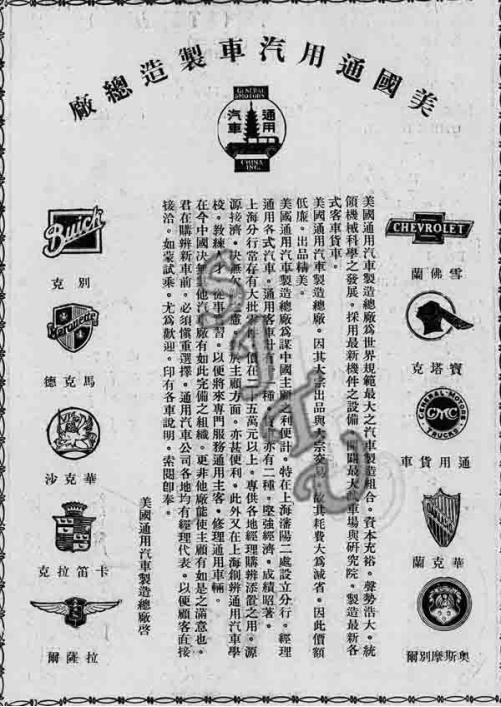 美國通用汽車製造總廠
GENERAL MOTORS
通用
汽車
CHINA INC.
CHEVROLET
雪佛蘭
寶塔克
GENERAL MOTORS
GMC
TRUCKS
通用貨車
華克蘭
奧斯摩別爾
美國通用汽車製造總廠爲世界規範最大之汽車製造組合。資本充裕。聲勢浩大。統
領機械科學之發展。採用最新機件之設備。開闢最大試車場與研究院。製造最新各
式客車貨車。
美國通用汽車製造總廠。因其大宗出品與大宗交易故其耗費大爲減省。因此價額
低廉。出品精美。
美國通用汽車製造總廠爲謀中國主顧之利便計。特在上海瀋陽二處設立分行。經理
通用各式汽車。通用客車計有 種。貨車亦有二種。堅強經濟。成績昭著。
上海分行常存有大批 件。價在二十五萬元以上。專供各地經理購辦添置之用。源
源接濟。決無欠 慮。於主顧方面。亦甚便利。此外又在上海創辦通用汽車學
校。教練人才。從事 習。以便將來專門服務通用主客。修理通用車輛。
在今中國决無 他汽車廠有如此完備之組織。更非他廠能使主顧有如是之滿意也。
君在購辦新車前。必須愼重選擇。通用汽車公司各地均有經理代表。以便顧客直接
接洽。如蒙試乘。尤爲歡迎。印有各車說明。索閱即奉。
美國通用汽車製造總廠啓
Buick
別克
Marquette
馬克德
華克沙
卡笛拉克
拉薩爾